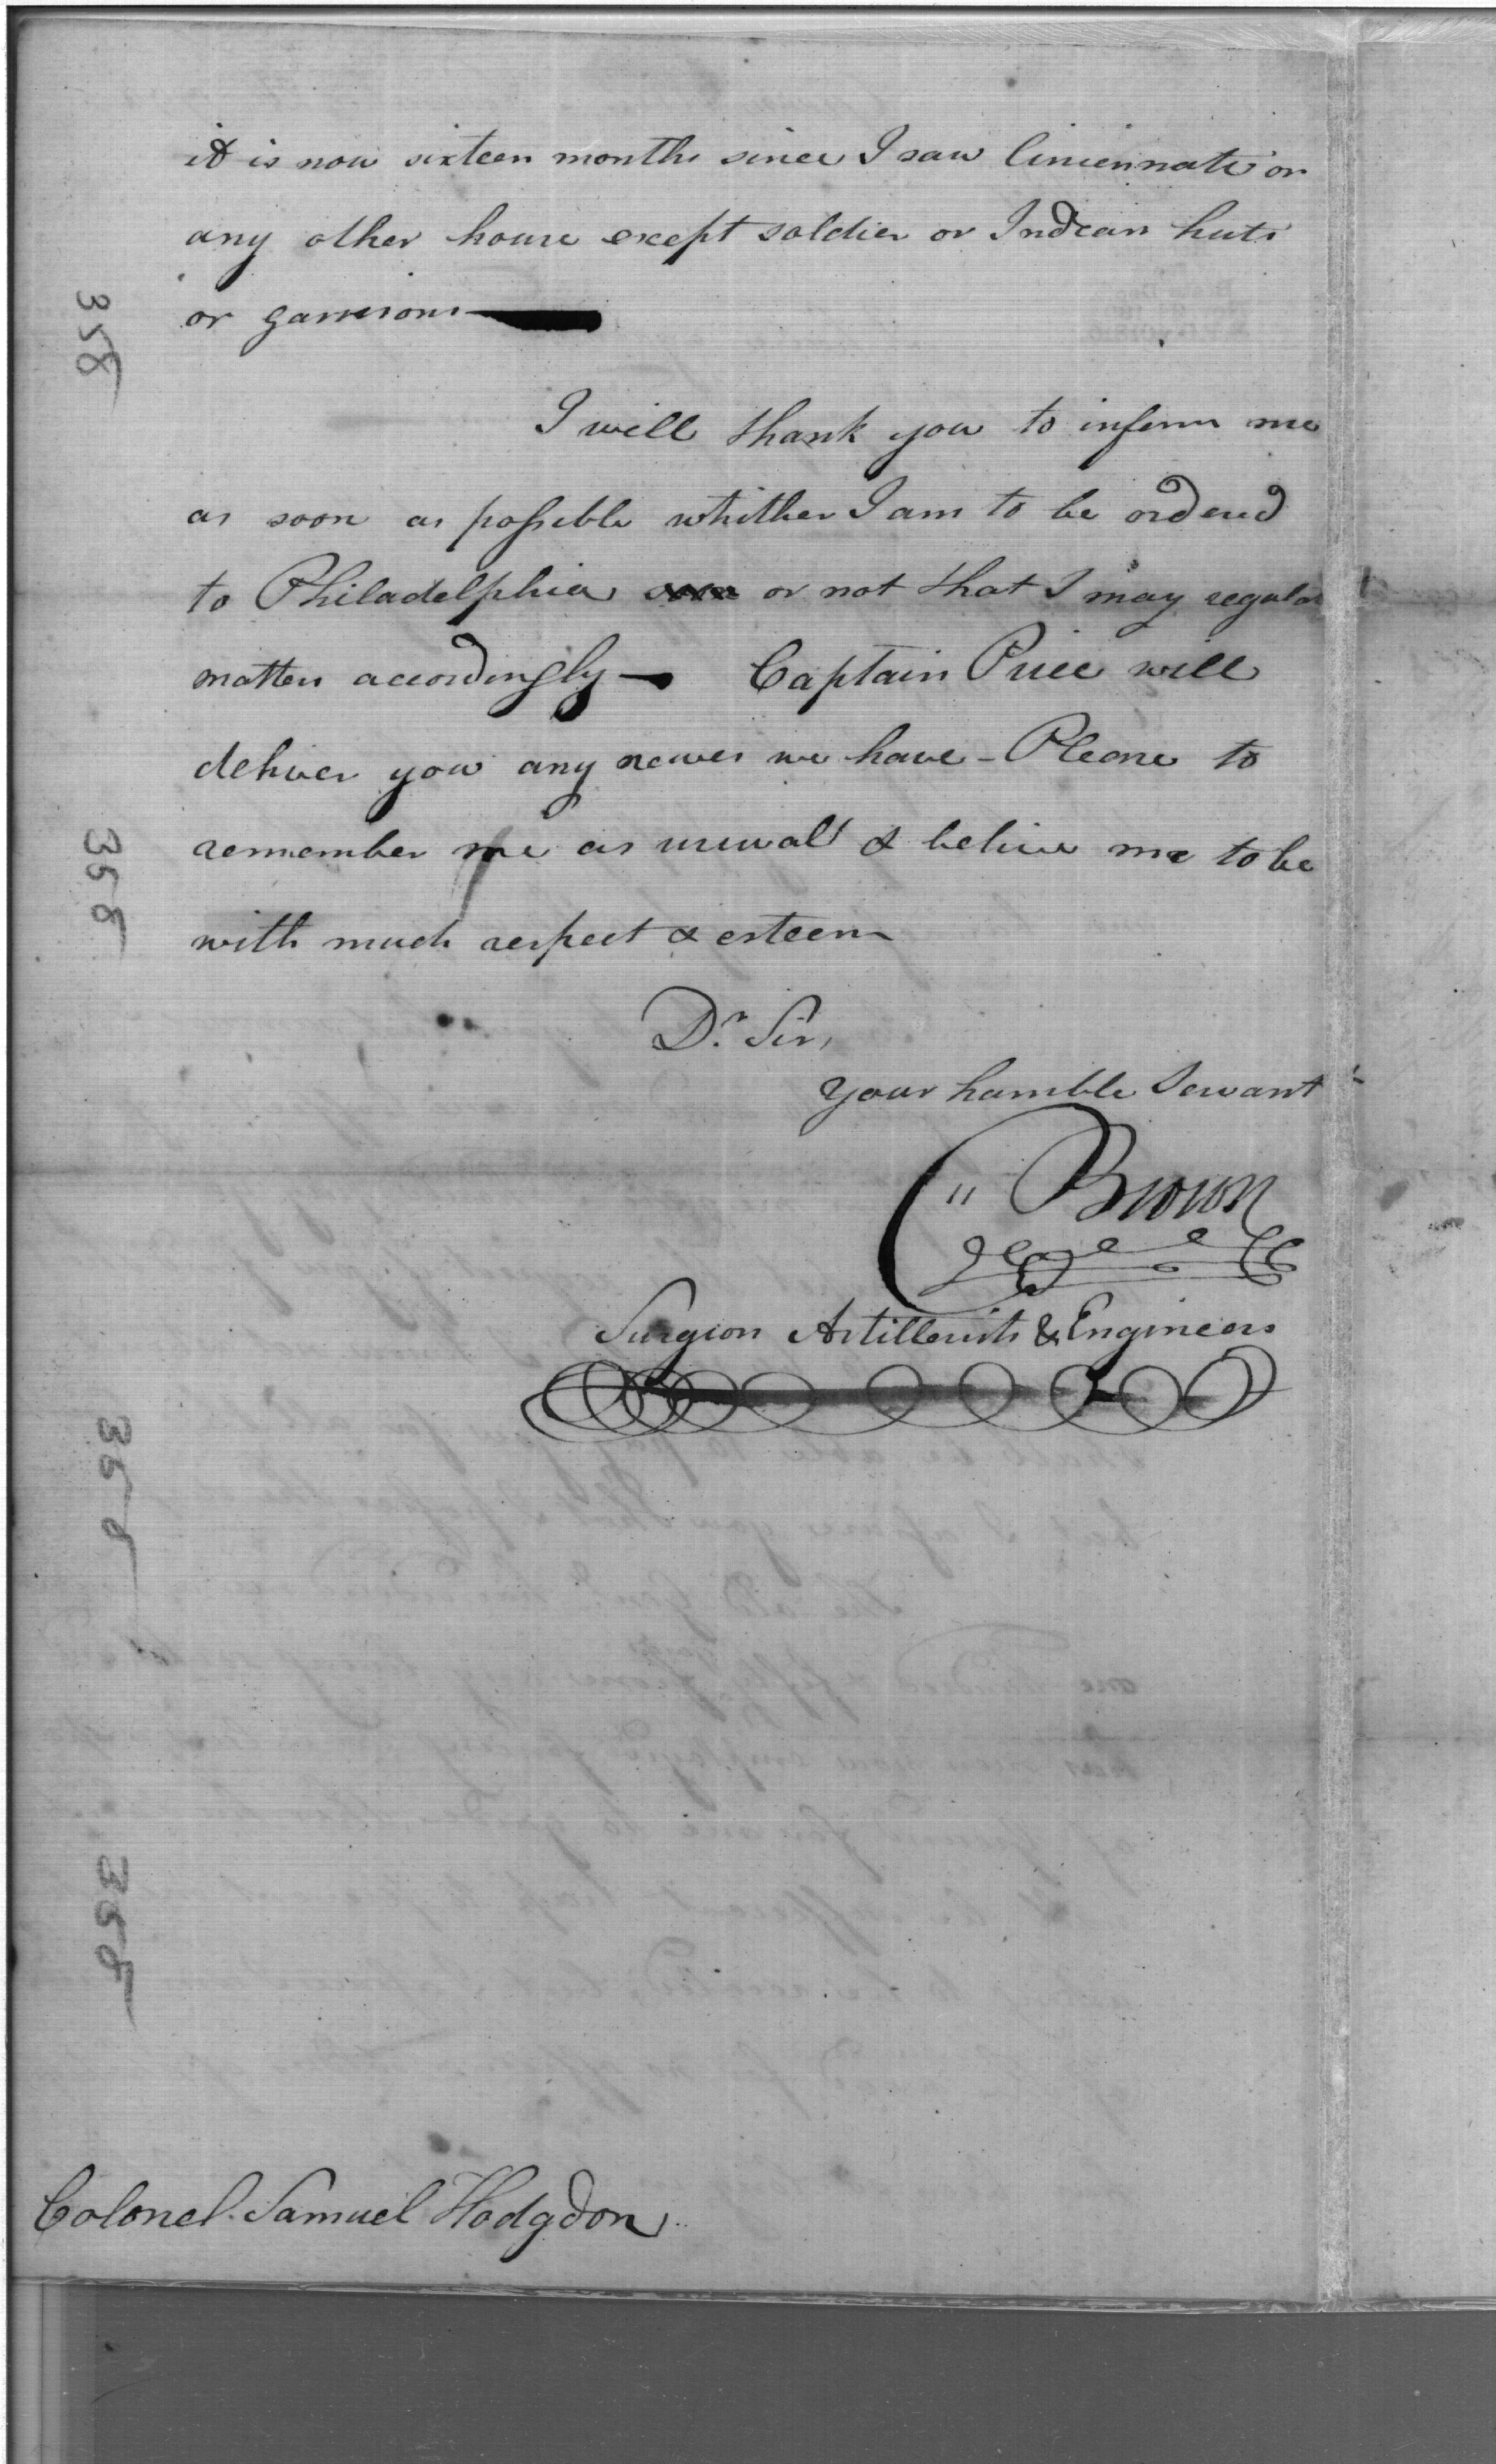 it is now sixteen months since I saw Cincinnati or
any other house except soldier or Indian huts
or garrisons
I will thank you to inform me
as soon as possible whither I am to be ordered
to Philadelphia or not that I may regular
matters accordingly — Captain Price will
deliver you any newes we have - Please to
remember me as usual & believe me to be
with much respect & esteem
Dr. Sir,
your humble Servant
C" Brown
Surgeon Artillerists & Engineers
Colonel. Samuel Hodgdon
358
358
358
358